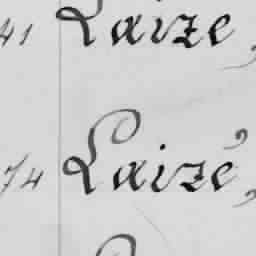 41 Laize,
74 Laizé,